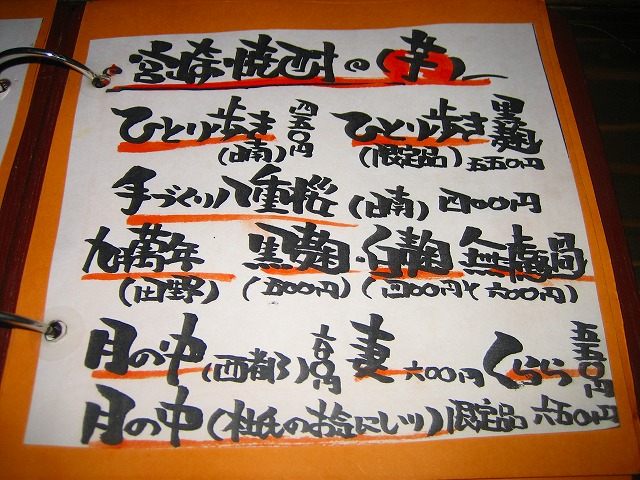 宮崎焼酎の辛
ひとり歩き 四五〇円 ひとり歩き 黒麹
(日南) (限定品) 五五〇円
手づくり八重桜 (日南) 四〇〇円
九萬年 黒麹・白麹 無濾過
(田野) (五〇〇円) (四〇〇円) (六〇〇円)
月の中 (西都) 六〇〇円 妻 六〇〇円 くらら 五五〇円
月の中 (杜氏のお気にいり) 限定品 六五〇円